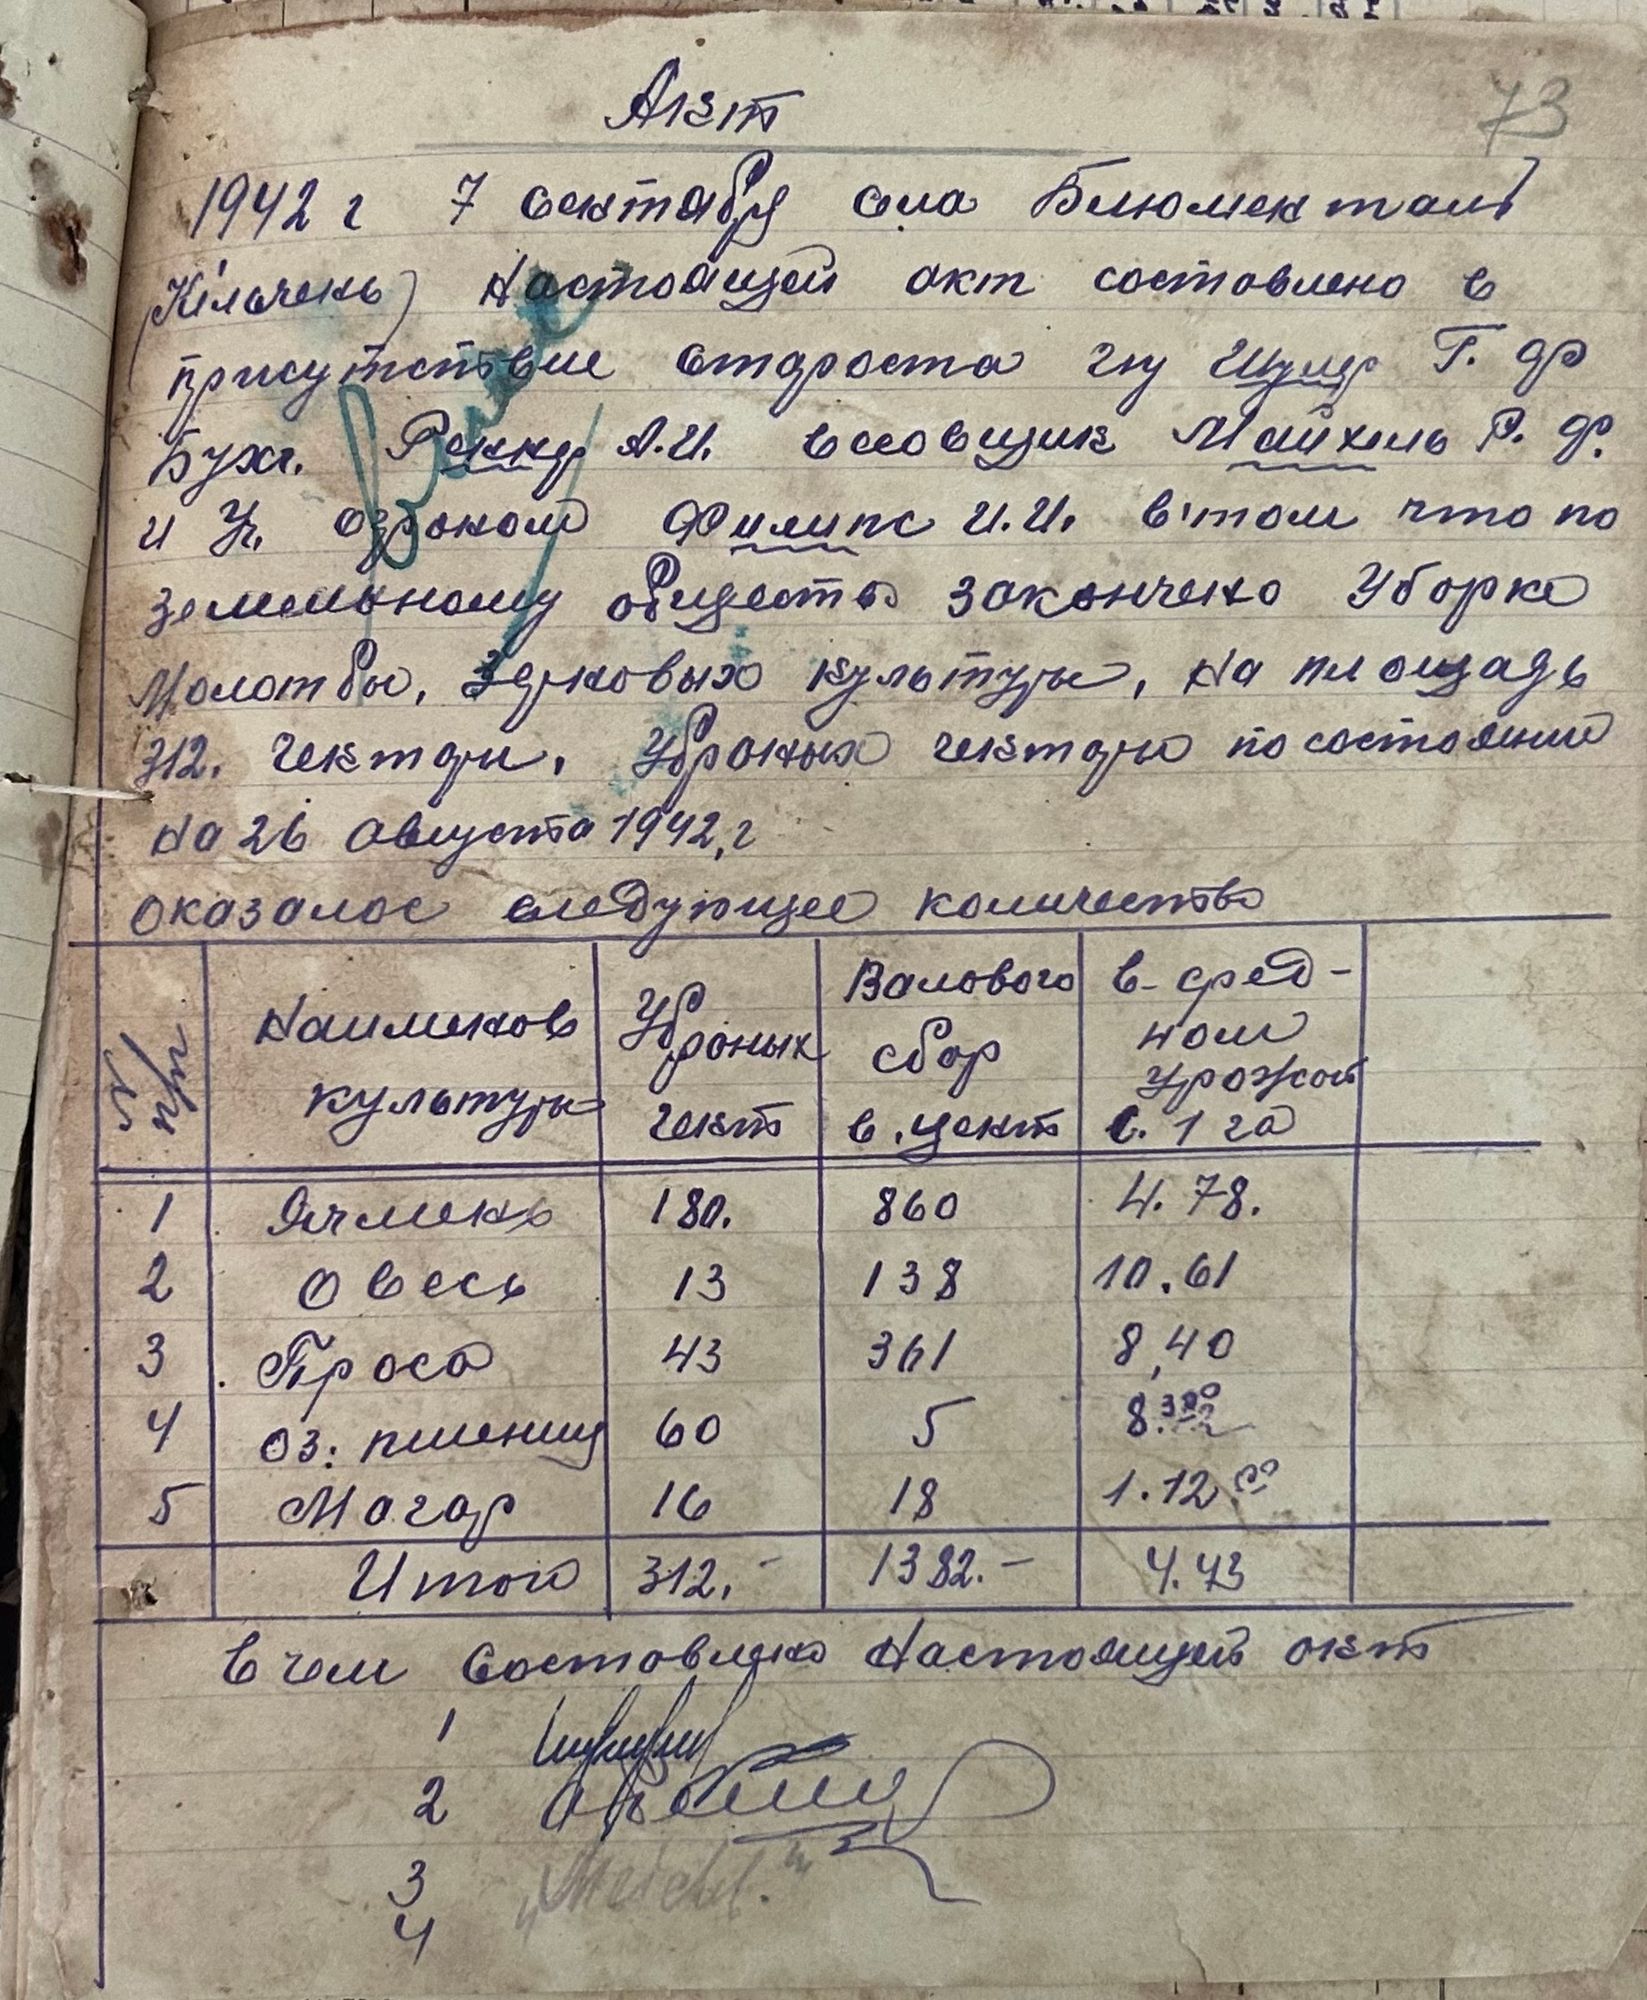 Акт
73
1942 г 7 сентября села Блюментал
(Кільчень) Настоящей акт составлено в
присутствие старosta г-ну Шуляр Г. Ф
Бухг. А.И. весовщик Майхель Р. Ф.
и Уч. агроном Филипс И.И. в том что по
земельному обществ закончено Уборка
Молотбы, Зерновых культуры, на площадь
312. гектары, Убраных гектары по состояний
на 26 августа 1942, г
оказалос следующее количество
N п/п
Наименов культуры
Убраных гект
Валового сбор в. цент
в-сред-ном урожай с. 1 га
1 Ячмень 180. 860 4.78.
2 Овесь 13 138 10.61
3 Проса 43 361 8,40
4 оз: пшениц 60 5 8.
5 Магар 16 18 1.12
Итого 312.- 1382.- 4.43
в чем Составлено Настоящей акт
1
2
3
4